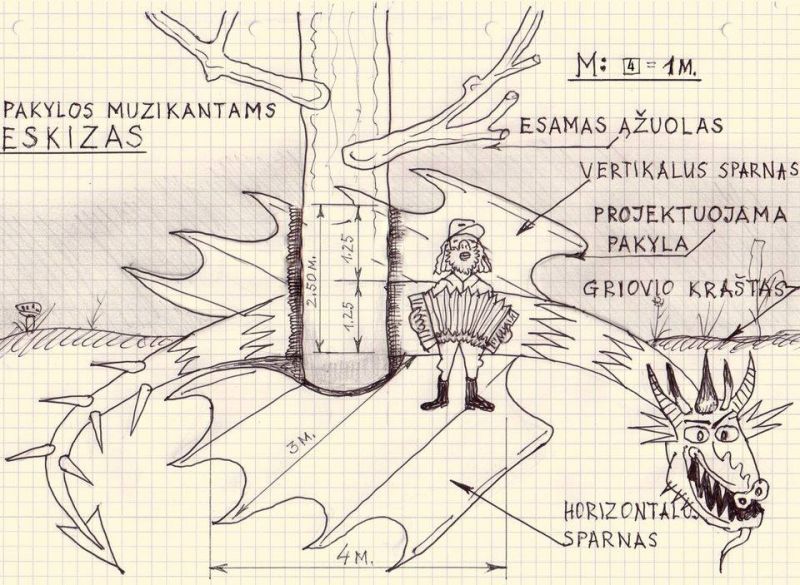 PAKYLOS MUZIKANTAMS
ESKIZAS
M: 4 = 1M.
ESAMAS ĄŽUOLAS
VERTIKALUS SPARNAS
PROJEKTUOJAMA
PAKYLA
GRIOVIO KRAŠTAS
2.50 M.
1.25
1.25
3 M.
4 M.
HORIZONTALUS
SPARNAS